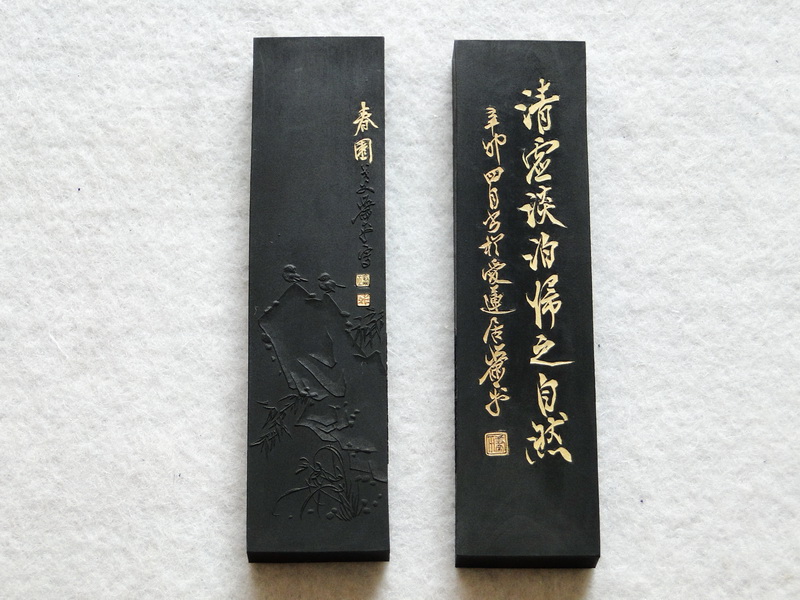 春園
清虛淡泊歸之自然
辛卯四月書於愛蓮居